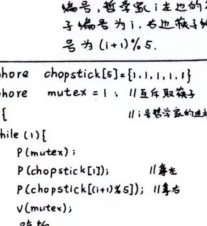 编号,哲学家i左边的
子编号为i,右边筷子编
号为(i+1)%5.
hore chopstick[5]={1,1,1,1,1}
hore mutex=1; //互斥取筷子
{ //i号哲学家的进
hile(1){
P(mutex);
P(chopstick[i]); //拿左
P(chopstick[(i+1)%5]); //拿右
V(mutex);
吃饭